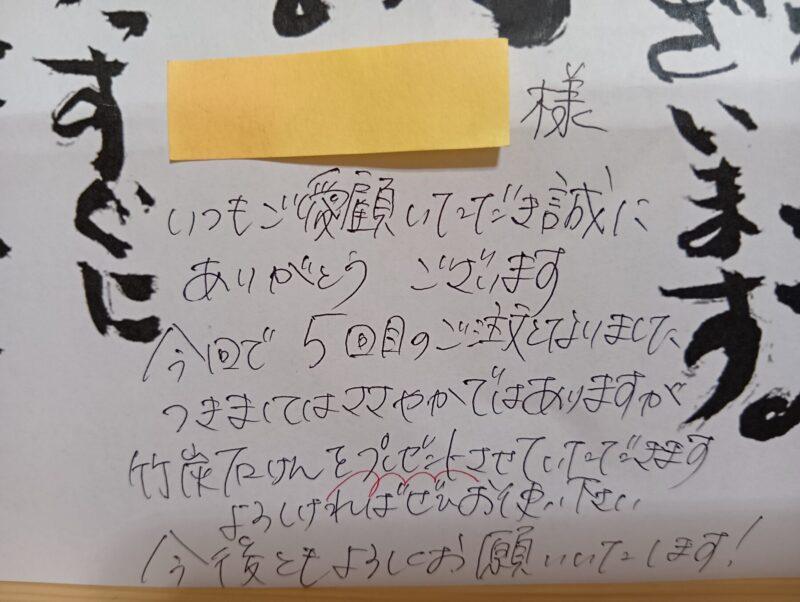 様
いつもご愛顧いただき誠に
ありがとう ございます
今回で 5回目のご注文となりまして、
つきましてはささやかではありますが
竹炭石けんをプレゼントさせていただきます
よろしければぜひお使い下さい
今後ともよろしくお願いいたします!
ざいます。
っすぐに